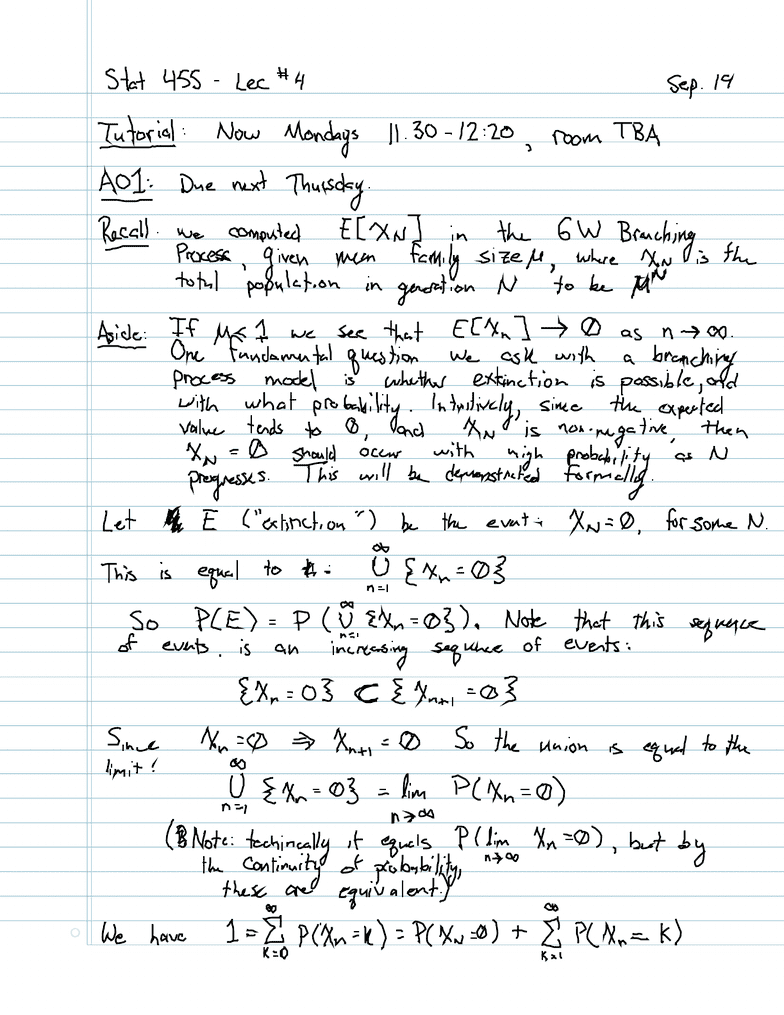 Stat 455 - Lec #4 Sep. 19
Tutorial: Now Mondays 11.30-12:20, room TBA
A01: Due next Thursday.
Recall. we computed E[X_N] in the GW Branching
Process, given mean family size μ, where X_N is the
total population in generation N to be μ^N
Aside: If μ<1 we see that E[X_n] → 0 as n→∞.
One fundamental question we ask with a branching
process model is whether extinction is possible, and
with what probability. Intuitively, since the expected
value tends to 0, and X_N is non-negative, then
X_N = 0 should occur with high probability as N
progresses. This will be demonstrated formally.
Let E ("extinction") be the event: X_N=0, for some N.
This is equal to: ∞⋃n=1 {X_n = 0}
So P(E) = P(∞⋃n=1 {X_n = 0}). Note that this sequence
of events, is an increasing sequence of events:
{X_n = 0} ⊂ {X_{n+1} = 0}
Since X_n = 0 ⇒ X_{n+1} = 0 So the union is equal to the
limit!
∞⋃n=1 {X_n = 0} = lim n→∞ P(X_n = 0)
(Note: techincally it equals P(lim n→∞ X_n = 0), but by
the continuity of probability,
these are equivalent.)
We have 1 = ∞∑k=0 P(X_n = k) = P(X_N = 0) + ∞∑k=1 P(X_n = k)